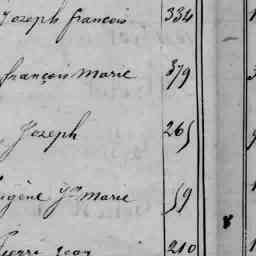 Joseph françois 334
françois Marie 379
Joseph 265
Eugène Jn Marie 59
Pierre Jean 210